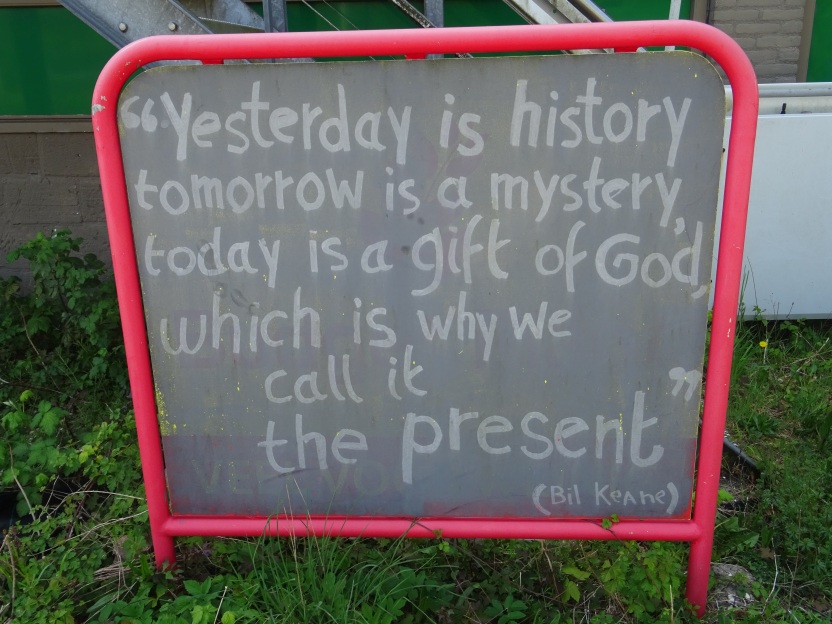 “Yesterday is history
tomorrow is a mystery,
today is a gift of God,
which is why we
call it
the present”
(Bil Keane)